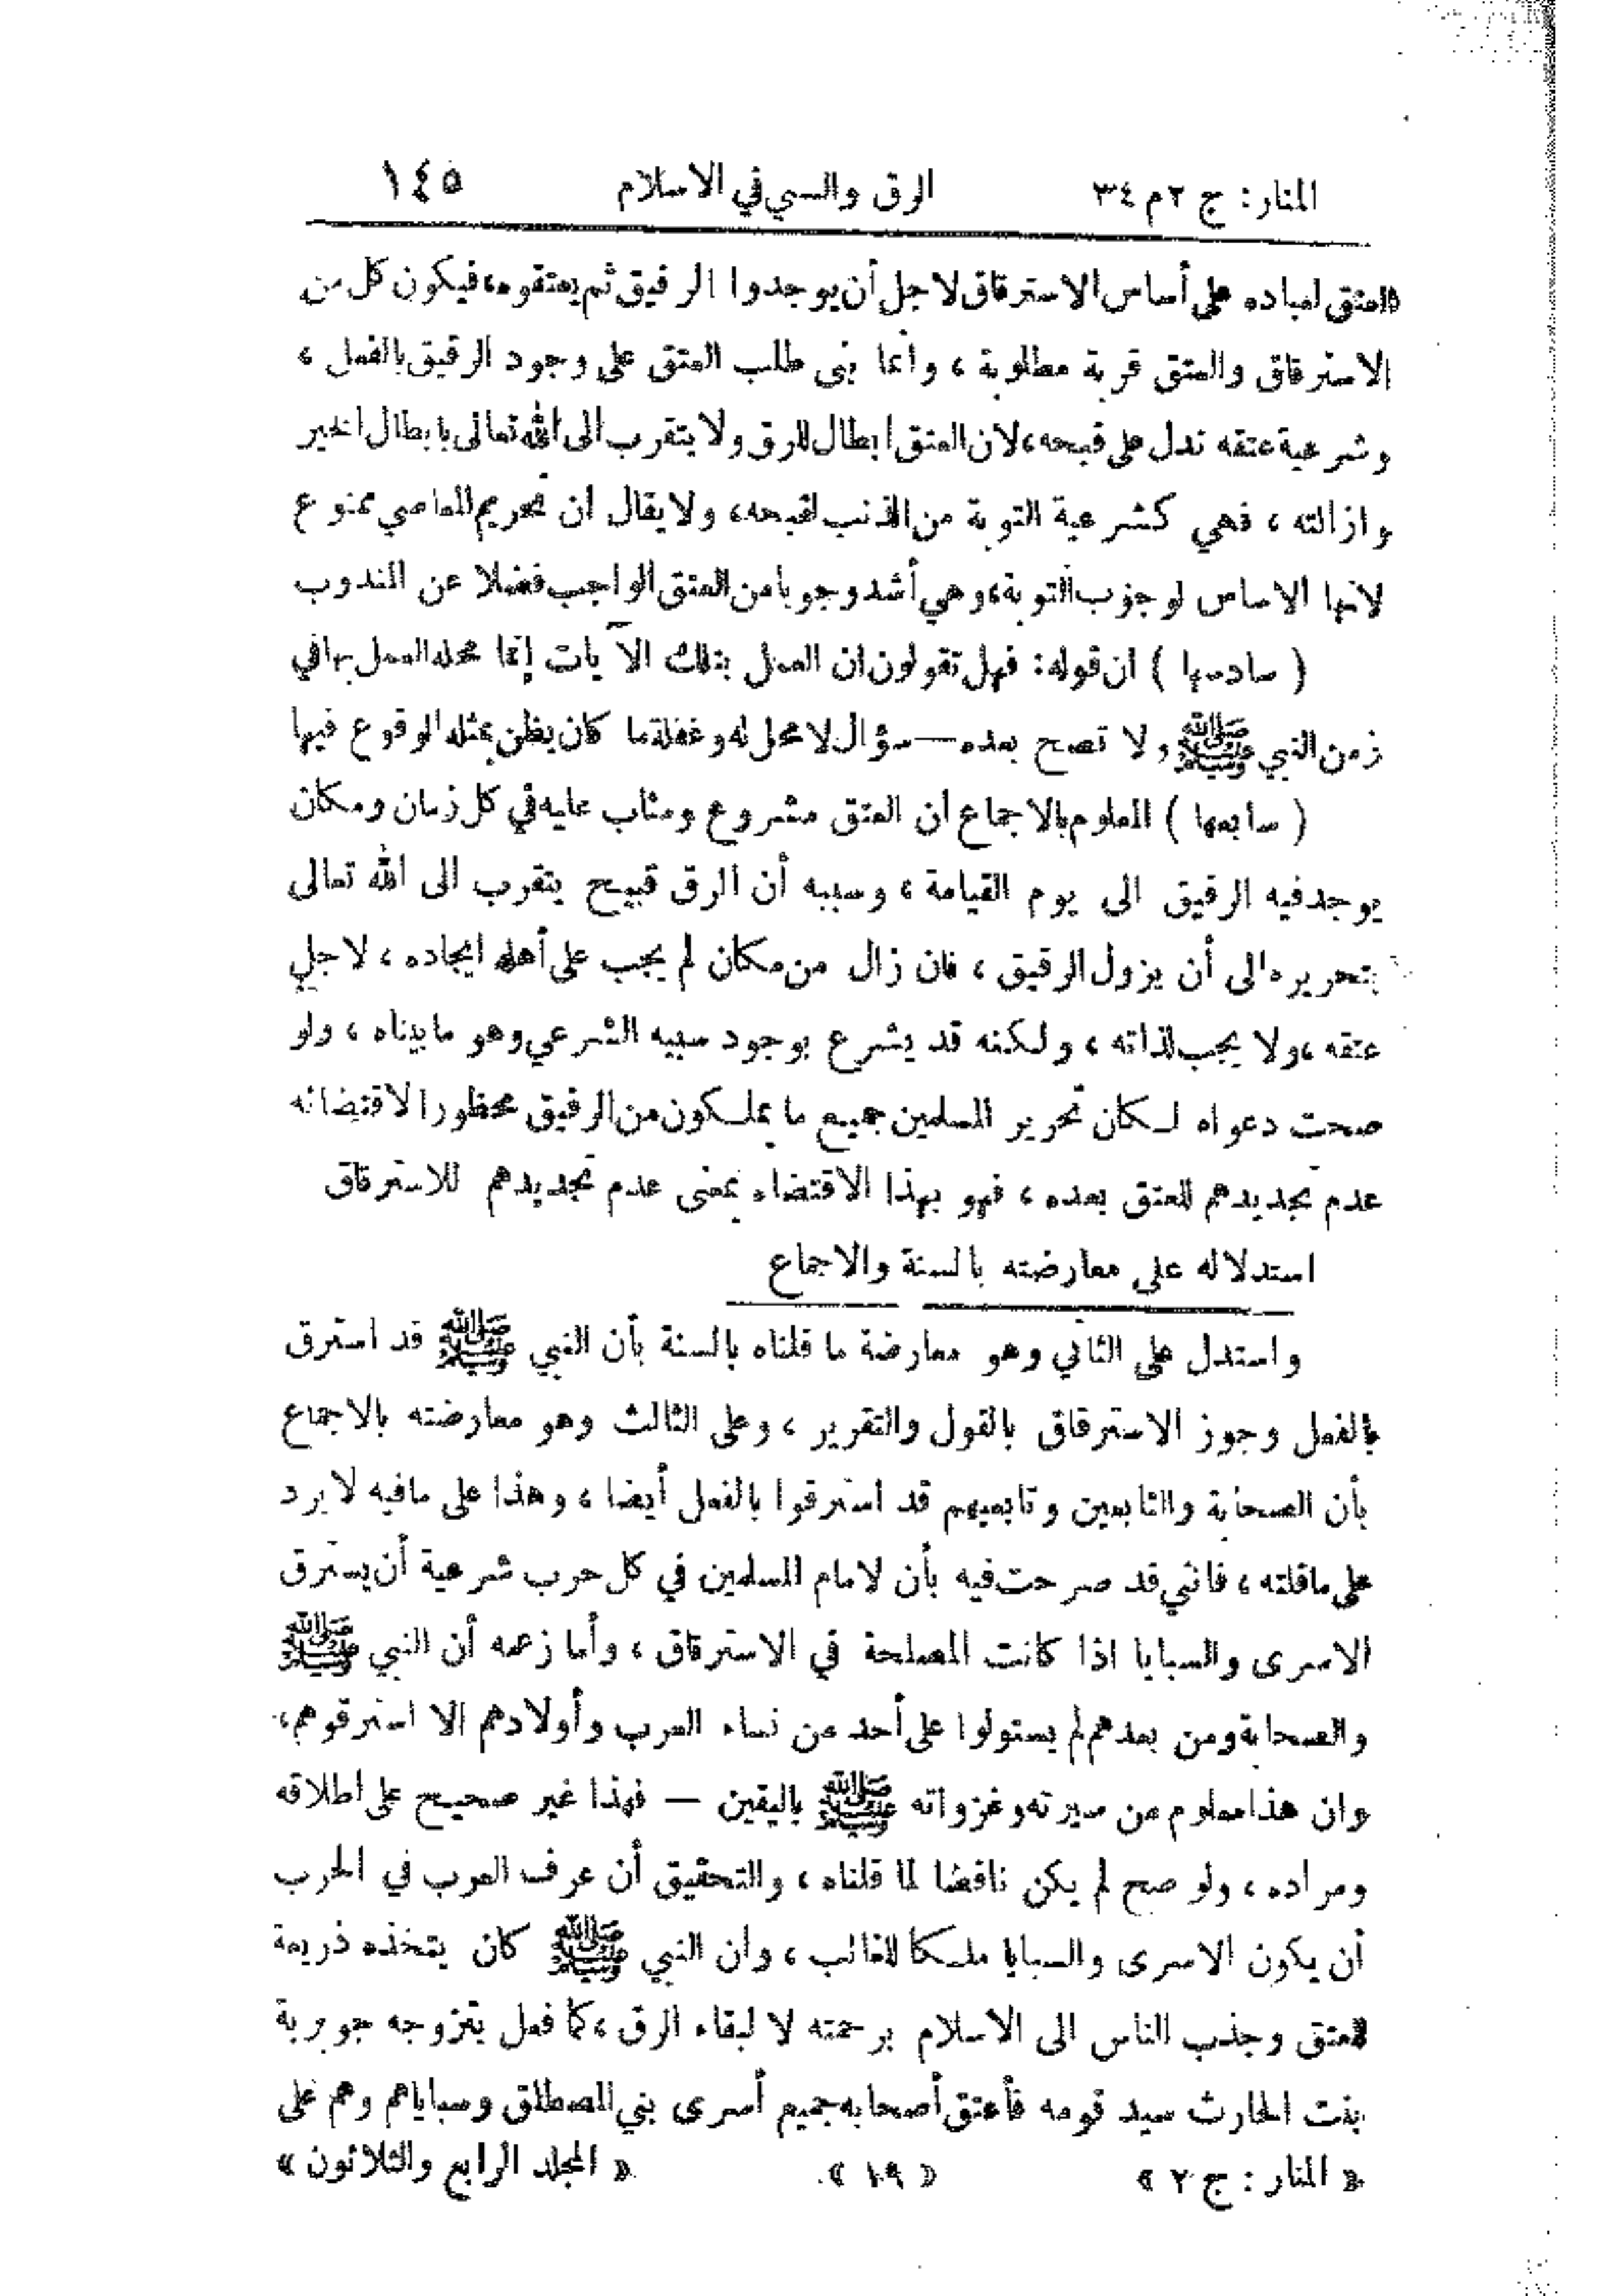 المنار: ج ٢ م ٣٤ الرق والسبي في الاسلام ١٤٥
العتق لعباده على أساس الاسترقاق لاجل أن يوجدوا الرقيق ثم يعتقوه، فيكون كل من
الاسترقاق والعتق قربة مطلوبة ، وانما بنى طلب العتق على وجود الرقيق بالفعل ،
وشرعية عتقه تدل على قبحه، لان العتق ابطال للرق ولا يتقرب الى الله تعالى بابطال الخير
وازالته ، فهي كشرعية التوبة من الذنب لقبحه، ولا يقال ان تحريم المعاصي ممنوع
لانها الاساس لوجوب التوبة، وهي أشد وجوبا من العتق الواجب فضلا عن المندوب
( سادسها ) ان قوله: فهل تقولون ان العمل بتلك الآيات إنما محله العمل بها في
زمن النبي ﷺ ولا تصح بعده — سؤال لا محل له وغفلة ما كان يظن بمثله الوقوع فيها
( سابعها ) المعلوم بالاجماع أن العتق مشروع ومثاب عليه في كل زمان ومكان
يوجد فيه الرقيق الى يوم القيامة ، وسببه أن الرق قبيح يتقرب الى الله تعالى
بتحريره الى أن يزول الرقيق ، فان زال من مكان لم يجب على أهله ايجاده ، لاجل
عتقه ، ولا يجب لذاته ، ولكنه قد يشرع بوجود سببه الشرعي وهو ما بيناه ، ولو
صحت دعواه لكان تحرير المسلمين جميع ما يملكون من الرقيق محظورا لاقتضائه
عدم تجديدهم للعتق بعده ، فهو بهذا الاقتضاء بمعنى عدم تجديدهم للاسترقاق
استدلاله على معارضته بالسنة والاجماع
واستدل على الثاني وهو معارضة ما قلناه بالسنة بأن النبي ﷺ قد استرق
بالفعل وجوز الاسترقاق بالقول والتقرير ، وعلى الثالث وهو معارضته بالاجماع
بأن الصحابة والتابعين وتابعيهم قد استرقوا بالفعل أيضا ، وهذا على ما فيه لا يرد
على ما قلته ، فانني قد صرحت فيه بأن لامام المسلمين في كل حرب شرعية أن يسترق
الاسرى والسبايا اذا كانت المصلحة في الاسترقاق ، وأما زعمه أن النبي ﷺ
والصحابة ومن بعدهم لم يستولوا على أحد من نساء العرب وأولادهم الا استرقوهم،
وان هذا معلوم من سيرته وغزواته ﷺ باليقين — فهذا غير صحيح على اطلاقه
ومراده ، ولو صح لم يكن ناقضا لما قلناه ، والتحقيق أن عرف العرب في الحرب
أن يكون الاسرى والسبايا ملكا للغالب ، وان النبي ﷺ كان يتخذه ذريعة
للعتق وجذب الناس الى الاسلام برحمته لا لبقاء الرق ، كما فعل بتزوجه جويرية
بنت الحارث سيد قومه فأعتق أصحابه جميع أسرى بني المصطلق وسباياهم وهم على
« المنار : ج ٢ » « ١٩ » « المجلد الرابع والثلاثون »